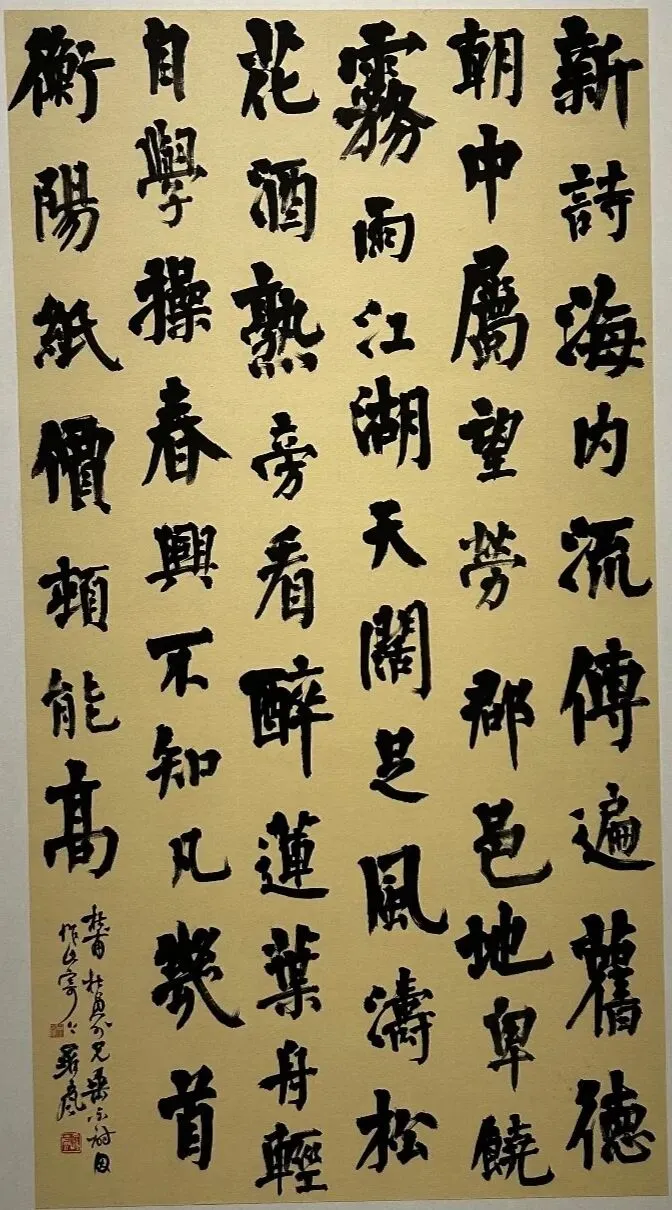 新詩海内流傳遍舊德
朝中屬望勞郡邑地卑饒
霧雨江湖天闊足風濤松
花酒熟旁看醉蓮葉舟輕
自學操春興不知凡幾首
衡陽紙價頓能高
杜甫 杜員外兄垂示詩因
作此寄上